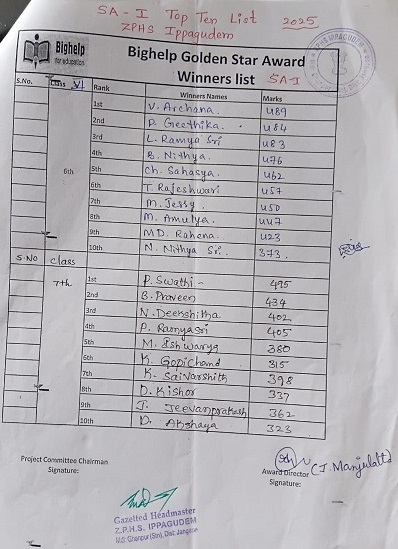 SA - I Top Ten List 2025
ZPHS Ippagudem
Bighelp
for education
Bighelp Golden Star Award
Winners list SA-I
S.No. Class VI Rank Winners Names Marks
6th
1st V. Archana. 489
2nd P. Geethika. 484
3rd L. Ramya Sri 483
4th B. Nithya. 476
5th Ch. Sahasya. 462
6th T. Rajeshwari 457
7th M. Jessy. 450
8th M. Amulya. 447
9th MD. Rahena. 423
10th N. Nithya Sri. 373.
S.NO class
7th
1st P. Swathi - 495
2nd B. Praveen 434
3rd N. Deekshitha 402
4th P. Ramya Sri 405
5th M. Ishwarya 380
6th K. Gopichand 315
7th K. Saivarshith 398
8th D. Kishor 337
9th J. Jeevanprakash 362
10th D. Akshaya 323
Project Committee Chairman
Signature:
Award Director (J. Manjulatta
Signature:
Gazetted Headmaster
Z.P.H.S. IPPAGUDEM